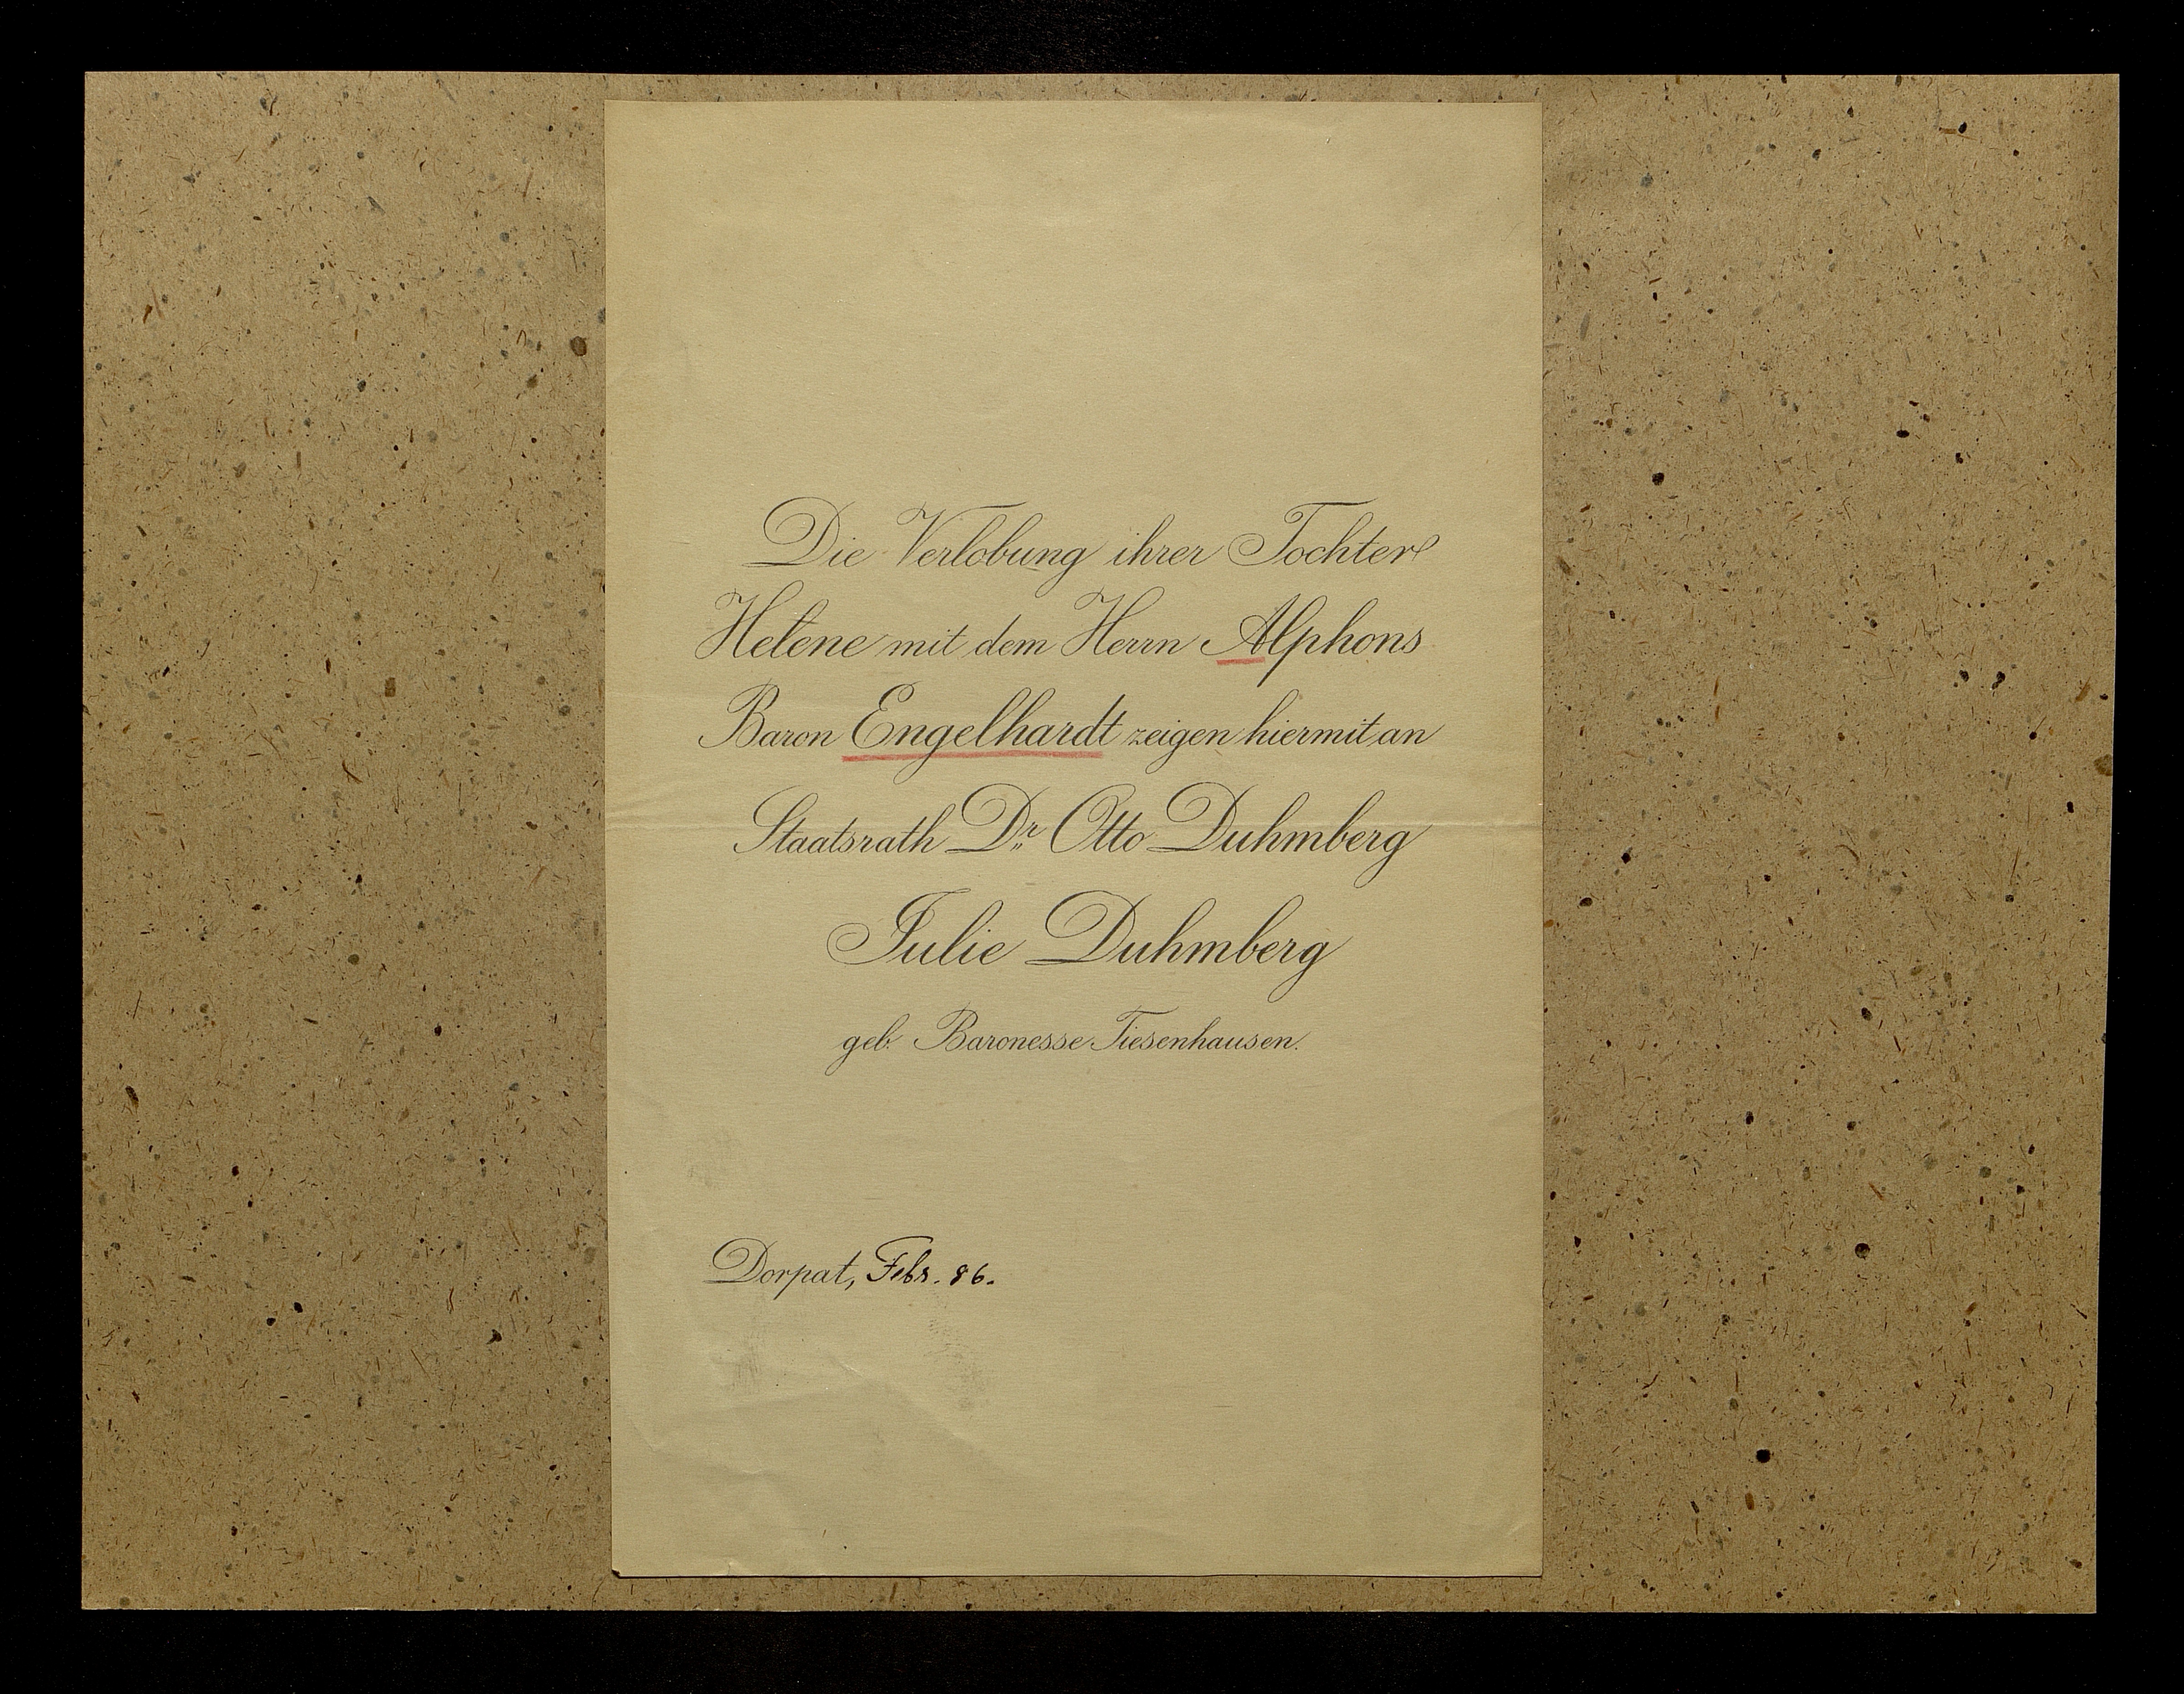 Die Verlobung ihrer Tochter
Helene mit dem Herrn Alphons
Baron Engelhardt zeigen hiermit an
Staatsrath Dr. Otto Duhmberg
Julie Duhmberg
geb. Baronesse Tiesenhausen.
Dorpat, Febr. 86.